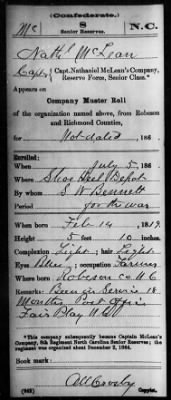 (Confederate.)
Mc 8 N.C.
Senior Reserves.
Nath'l McLean
Capt, Capt. Nathaniel McLean's Company,
Reserve Force, Senior Class.*
Appears on
Company Muster Roll
of the organization named above, from Robeson
and Richmond Counties,
for Not dated, 186 .
Enrolled:
When July 5, 186 .
Where Shoe Heel Depot
By whom S W Bennett
Period for the war
When born Feb 14, 1819.
Height 5 feet 10 inches.
Complexion Light; hair Light
Eyes Blue; occupation Farmer
Where born Robeson Co N C
Remarks: Been in Service 18
Months Post Offi
Fair Play N C
*This company subsequently became Captain McLean's
Company, 8th Regiment North Carolina Senior Reserves; the
regiment was organized about December 2, 1864.
Book mark:
Copyist.